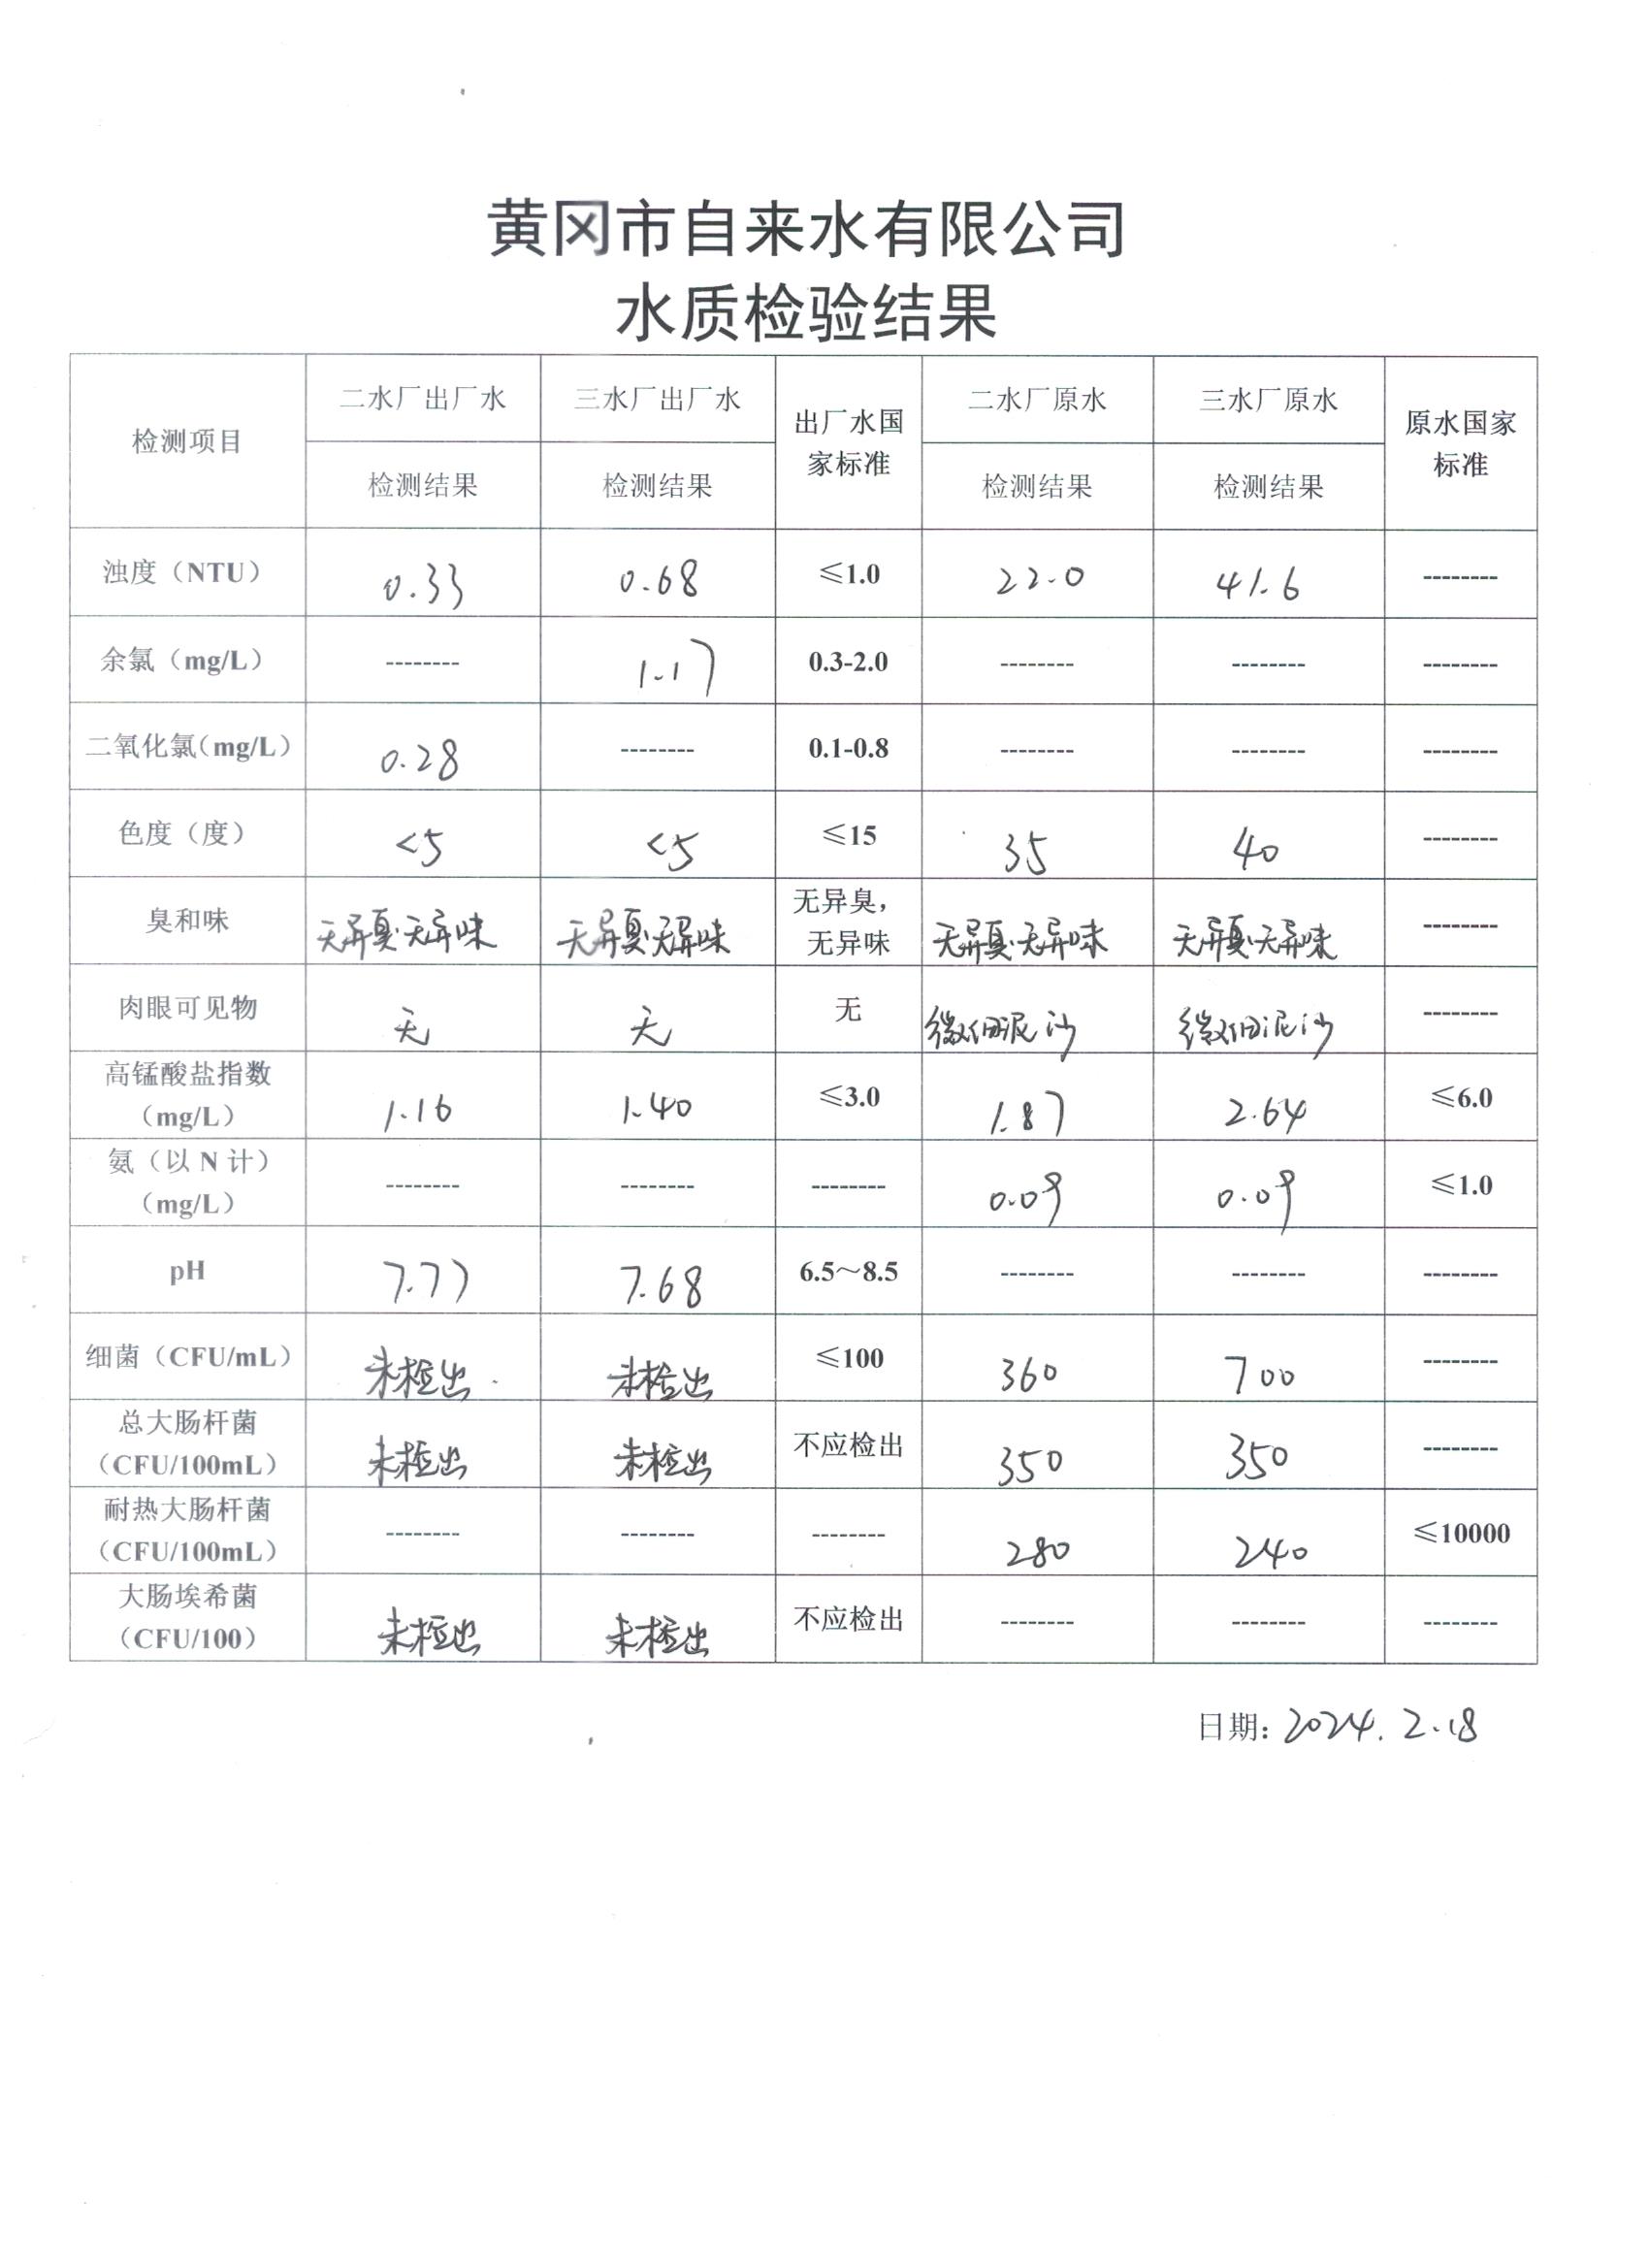 黄冈市自来水有限公司
水质检验结果
检测项目 二水厂出厂水 三水厂出厂水 出厂水国家标准 二水厂原水 三水厂原水 原水国家标准
检测结果 检测结果 检测结果 检测结果
浊度（NTU） 0.33 0.68 ≤1.0 22.0 41.6 --------
余氯（mg/L） -------- 1.17 0.3-2.0 -------- -------- --------
二氧化氯（mg/L） 0.28 -------- 0.1-0.8 -------- -------- --------
色度（度） <5 <5 ≤15 35 40 --------
臭和味 无异臭.无异味 无异臭.无异味 无异臭，无异味 无异臭.无异味 无异臭.无异味 --------
肉眼可见物 无 无 无 微细泥沙 微细泥沙 --------
高锰酸盐指数（mg/L） 1.16 1.40 ≤3.0 1.87 2.64 ≤6.0
氨（以 N 计）（mg/L） -------- -------- -------- 0.09 0.09 ≤1.0
pH 7.77 7.68 6.5～8.5 -------- -------- --------
细菌（CFU/mL） 未检出 未检出 ≤100 360 700 --------
总大肠杆菌（CFU/100mL） 未检出 未检出 不应检出 350 350 --------
耐热大肠杆菌（CFU/100mL） -------- -------- -------- 280 240 ≤10000
大肠埃希菌（CFU/100） 未检出 未检出 不应检出 -------- -------- --------
日期: 2024.2.18